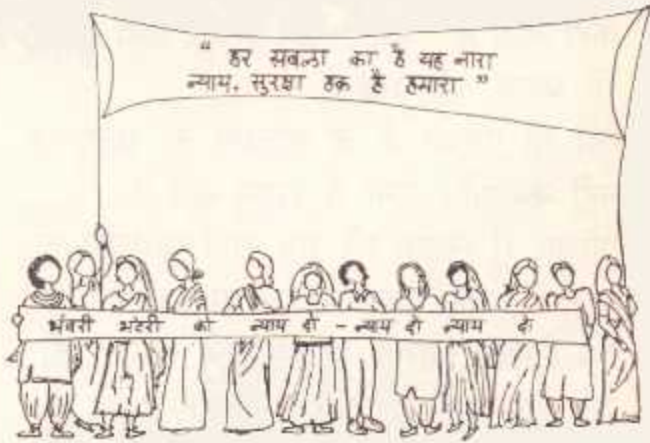 " हर सबला का है यह नारा
न्याय, सुरक्षा हक़ है हमारा "
भंवरी भटेरी को न्याय दो - न्याय दो न्याय दो